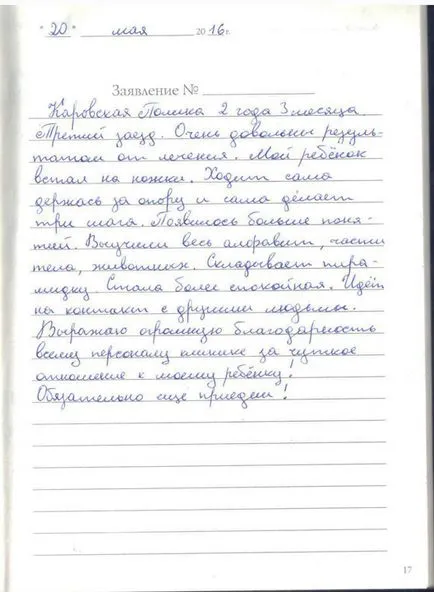 "20" мая 2016 г.
Заявление №
Каровская Полина 2 года 3 месяца.
Третий заезд. Очень довольны резуль-
татом от лечения. Мой ребёнок
встал на ножки. Ходит сама
держась за опору и сама делает
три шага. Появилось больше поня-
тий. Выучили весь алфавит, части
тела, животных. Складывает пира-
мидку. Стала более спокойная. Идёт
на контакт с другими людьмы.
Выражаю огромную благодарность
всему персоналу клинике за чуткое
отношение к моему ребёнку!
Обязательно еще приедем!
17